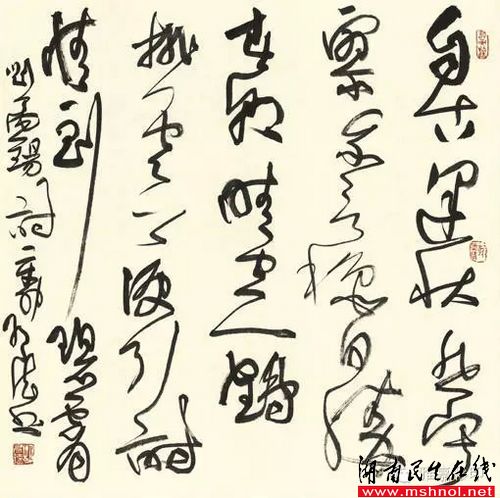 自古逢秋悲寂
寥我言秋日勝
春朝晴空一鶴
排雲上便引詩
情到碧霄
劉禹錫詩一首
湖南民生在线
www.mshnol.net